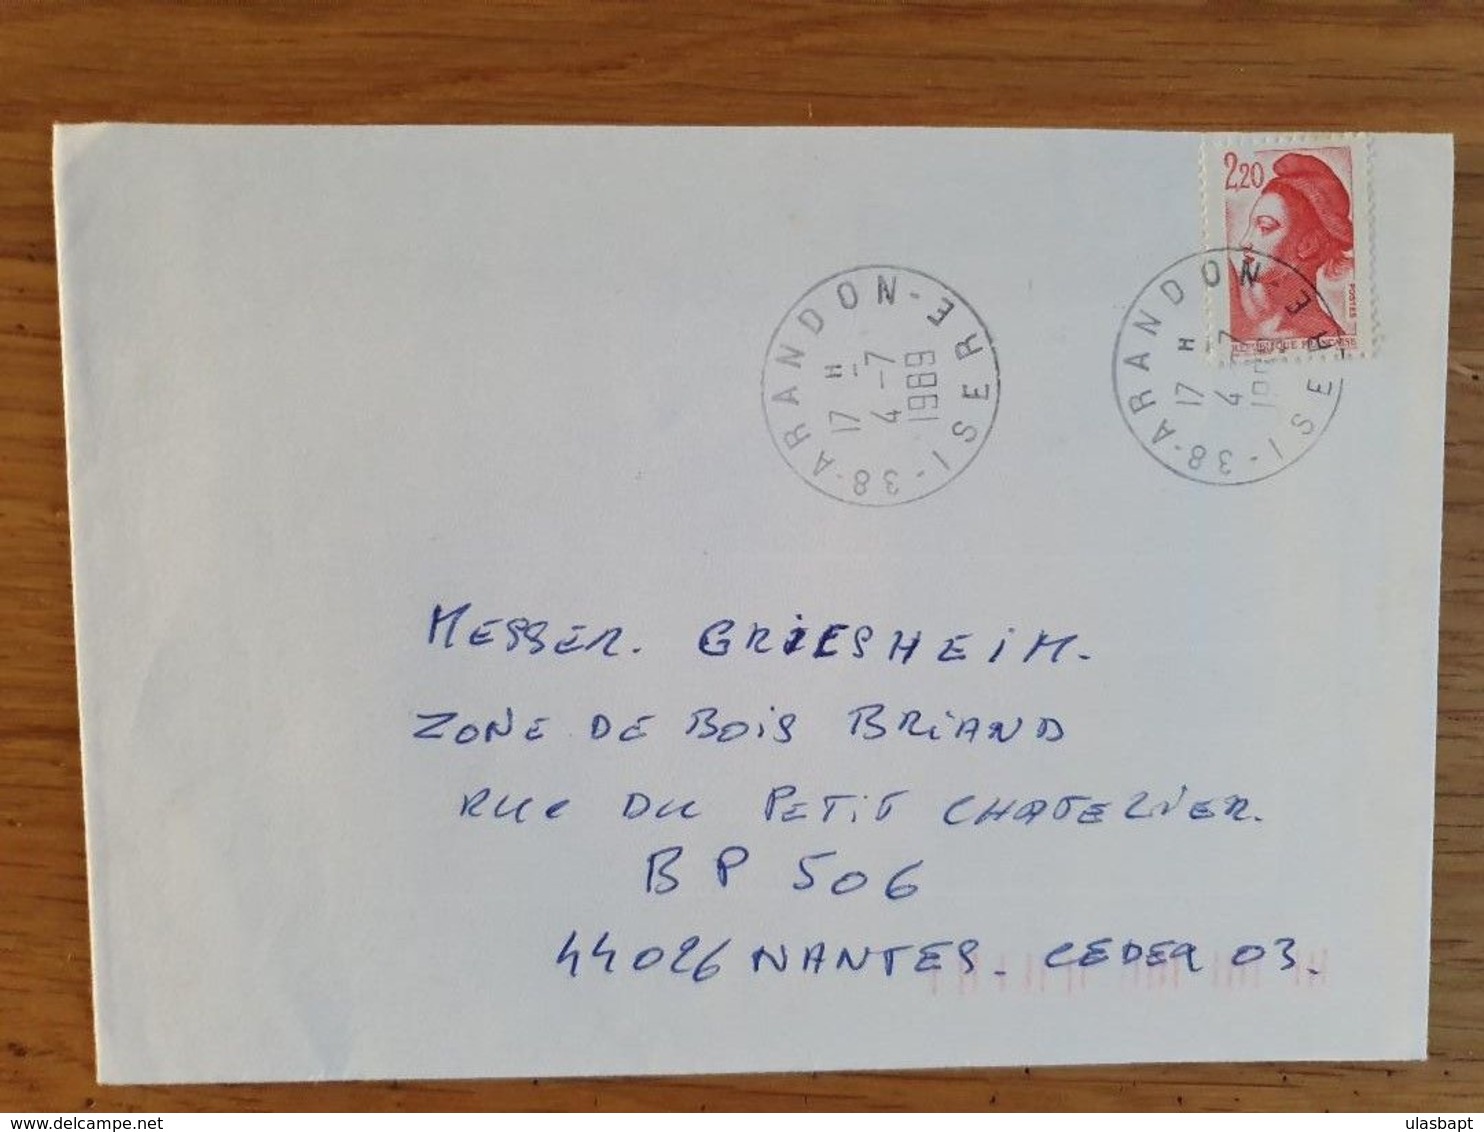 2,20
POSTES
REPUBLIQUE FRANCAISE
38-ARANDON-ISERE
17 H
4 -7
1989
38-ARANDON-ISERE
17 H
4 -7
MESSER. GRIESHEIM.
ZONE DE BOIS BRIAND
RUE DU PETIT CHATELIER.
BP 506
44026 NANTES. CEDEX 03.
delcampe.net
ulasbapt